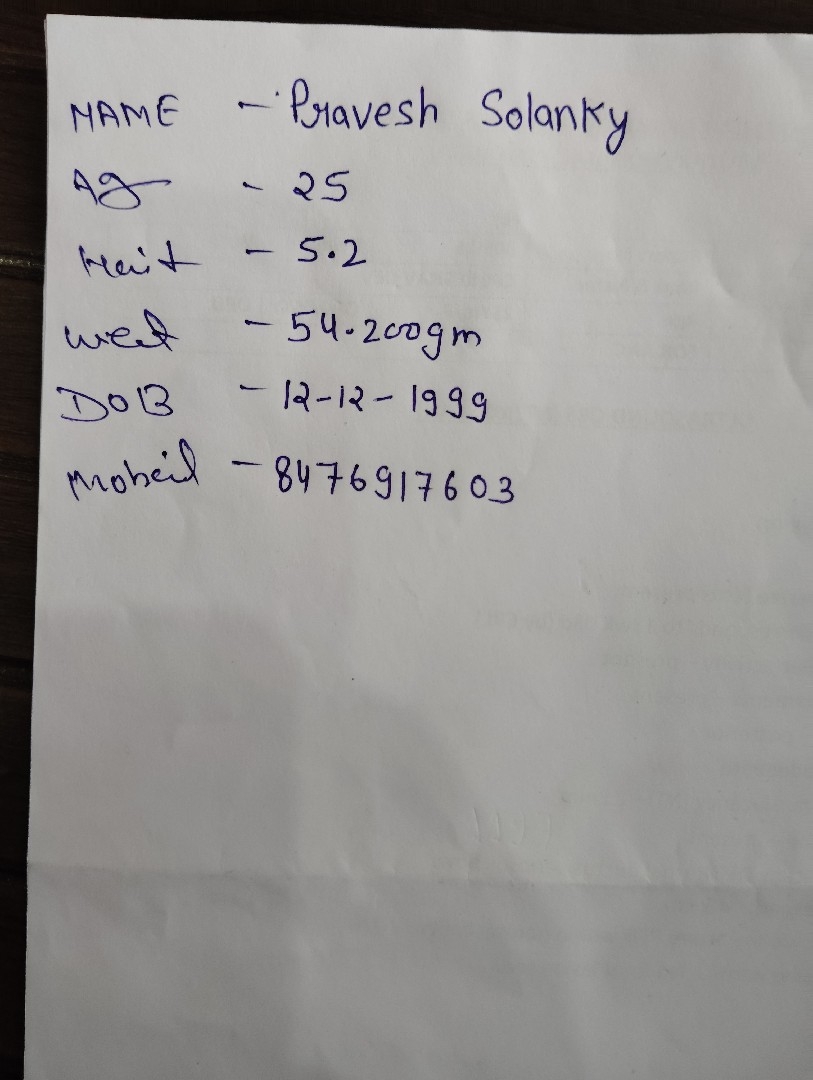 NAME - Pravesh Solanky
Ag - 25
Hait - 5.2
weit - 54.200gm
DOB - 12-12-1999
Mobeil - 8476917603